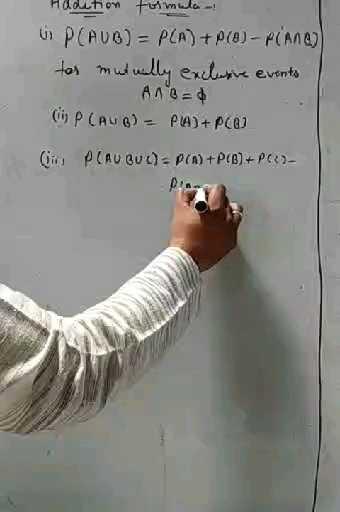 Addition formula -:
(i) P(A∪B) = P(A) + P(B) - P(A∩B)
for mutually exclusive events
A∩B = ϕ
(ii) P(A∪B) = P(A) + P(B)
(iii) P(A∪B∪C) = P(A) + P(B) + P(C) -
P(A